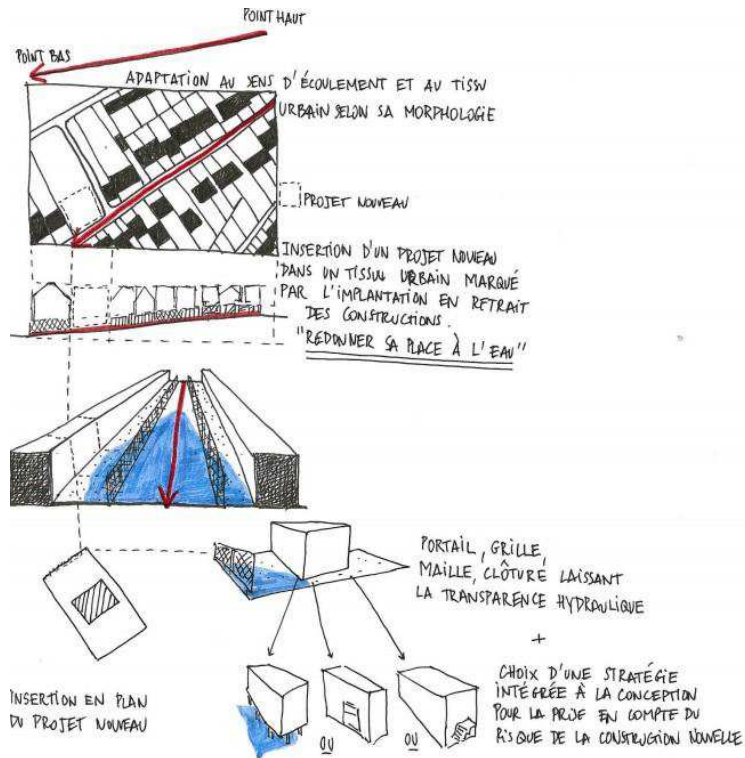 POINT HAUT
POINT BAS
ADAPTATION AU SENS D'ÉCOULEMENT ET AU TISSU
URBAIN SELON SA MORPHOLOGIE
PROJET NOUVEAU
INSERTION D'UN PROJET NOUVEAU
DANS UN TISSU URBAIN MARQUÉ
PAR L'IMPLANTATION EN RETRAIT
DES CONSTRUCTIONS.
"REDONNER SA PLACE À L'EAU"
PORTAIL, GRILLE,
MAILLE, CLÔTURÉ LAISSANT
LA TRANSPARENCE HYDRAULIQUE
+
CHOIX D'UNE STRATÉGIE
INTÉGRÉE À LA CONCEPTION
POUR LA PRISE EN COMPTE DU
RISQUE DE LA CONSTRUCTION NOUVELLE
INSERTION EN PLAN
DU PROJET NOUVEAU
OU
OU